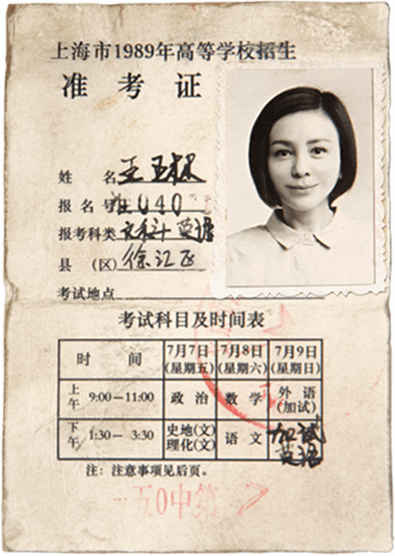 上海市1989年高等学校招生
准考证
姓 名 王
报名号 040
报考科类 文科 英语
县 (区) 徐汇区
考试地点
考试科目及时间表
时 间 7月7日(星期五) 7月8日(星期六) 7月9日(星期日)
上午 9:00—11:00 政治 数学 外语(加试)
下午 1:30—3:30 史地(文)理化(文) 语文 加试英语
注：注意事项见后页。
一五0中第